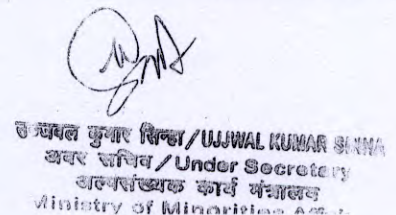 उज्जवल कुमार सिन्हा/UJJWAL KUMAR SINHA
अवर सचिव/Under Secretary
अल्पसंख्यक कार्य मंत्रालय
Ministry of Minorities Affairs